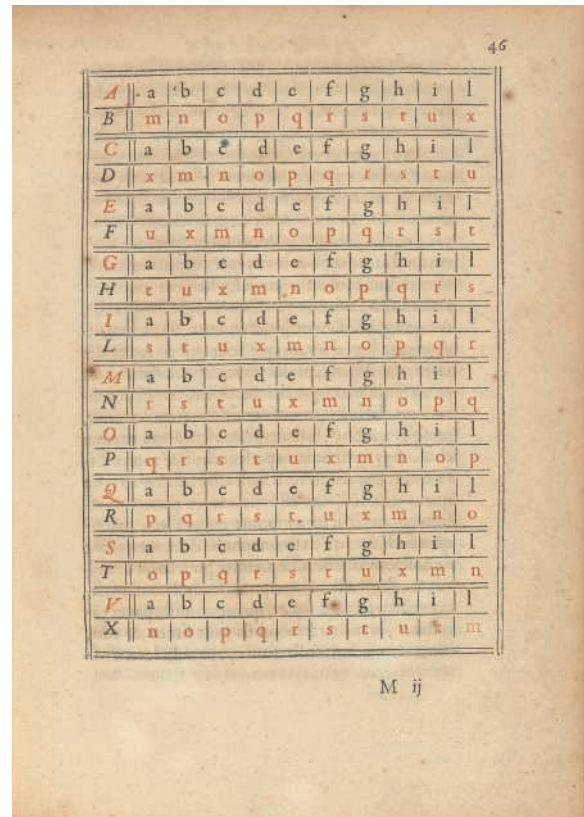 46
A a b c d e f g h i l
B m n o p q r s t u x
C a b c d e f g h i l
D x m n o p q r s t u
E a b c d e f g h i l
F u x m n o p q r s t
G a b c d e f g h i l
H t u x m n o p q r s
I a b c d e f g h i l
L s t u x m n o p q r
M a b c d e f g h i l
N r s t u x m n o p q
O a b c d e f g h i l
P q r s t u x m n o p
Q a b c d e f g h i l
R p q r s t u x m n o
S a b c d e f g h i l
T o p q r s t u x m n
V a b c d e f g h i l
X n o p q r s t u x m
M ij